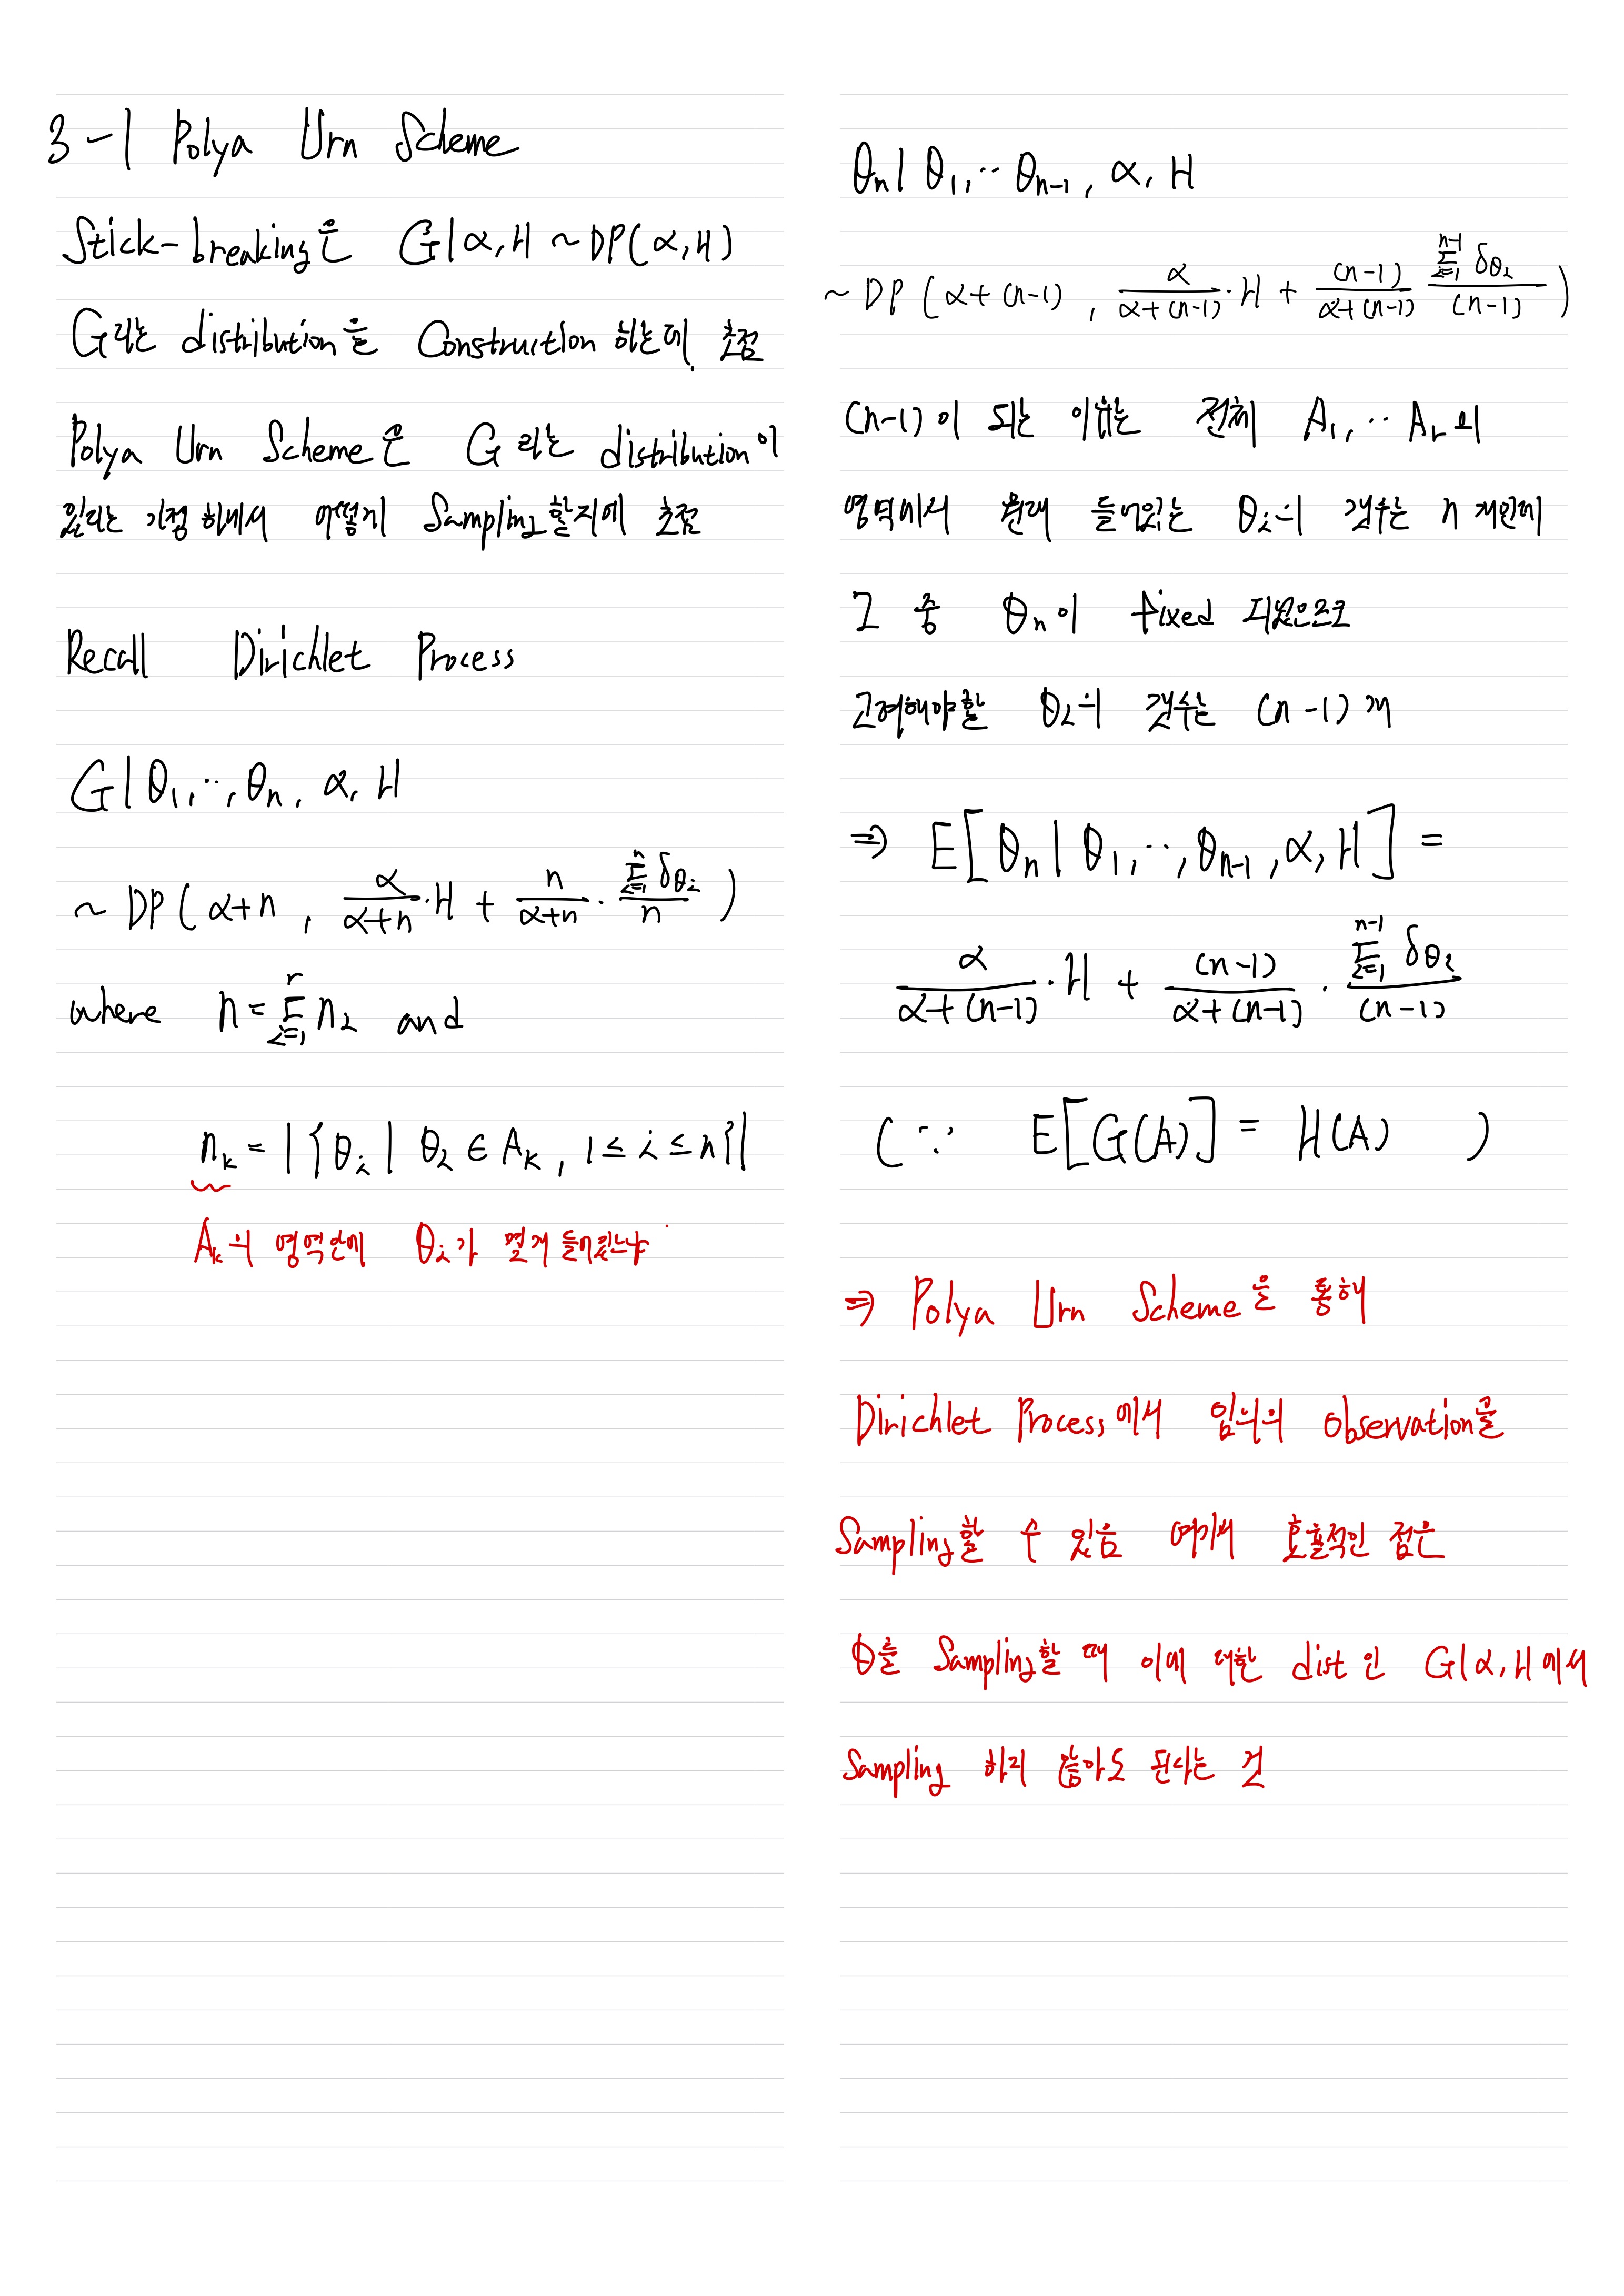 3-1 Polya Urn Scheme
Stick-breaking은 G|α,H ~ DP(α,H)
G라는 distribution을 Construction 하는데 초점
Polya Urn Scheme은 G 라는 distribution이
있다는 가정 하에서 어떻게 Sampling할지에 초점
Recall Dirichlet Process
G|θ₁,…,θₙ, α, H
~ DP(α+n, α/(α+n)·H + n/(α+n)·(Σᵢ₌₁ⁿ δ_θᵢ)/n)
where n = Σᵢ₌₁ʳ nᵢ and
nₖ = |{θᵢ | θᵢ ∈ Aₖ, 1 ≤ i ≤ n}|
Aₖ의 영역안에 θᵢ가 몇개 들어있느냐
θₙ| θ₁,…θₙ₋₁, α, H
~ DP(α+(n-1), α/(α+(n-1))·H + (n-1)/(α+(n-1)) (Σᵢ₌₁ⁿ⁻¹ δ_θᵢ)/(n-1))
(n-1)이 되는 이유는 전체 A₁,…Aᵣ의
영역에서 원래 들어있는 θᵢ의 갯수는 n개인데
그 중 θₙ이 fixed 되었으므로
고려해야할 θᵢ의 갯수는 (n-1)개
⇒ E[θₙ | θ₁,…,θₙ₋₁,α,H] =
α/(α+(n-1))·H + (n-1)/(α+(n-1))·(Σᵢ₌₁ⁿ⁻¹ δ_θᵢ)/(n-1)
(∵ E[G(A)] = H(A) )
⇒ Polya Urn Scheme을 통해
Dirichlet Process에서 임의의 observation을
Sampling할 수 있음 여기서 효율적인 점은
θ를 Sampling할 때 이에 대한 dist 인 G|α,H에서
Sampling 하지 않아도 된다는 것